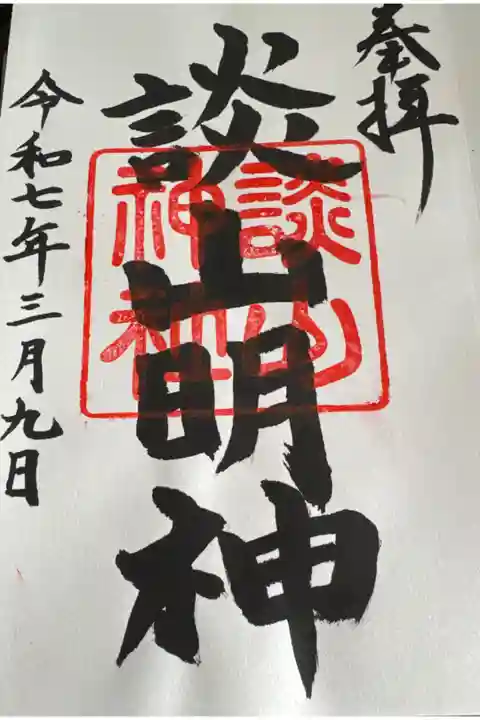 奉拝
談山明神
談山
神社
令和七年三月九日